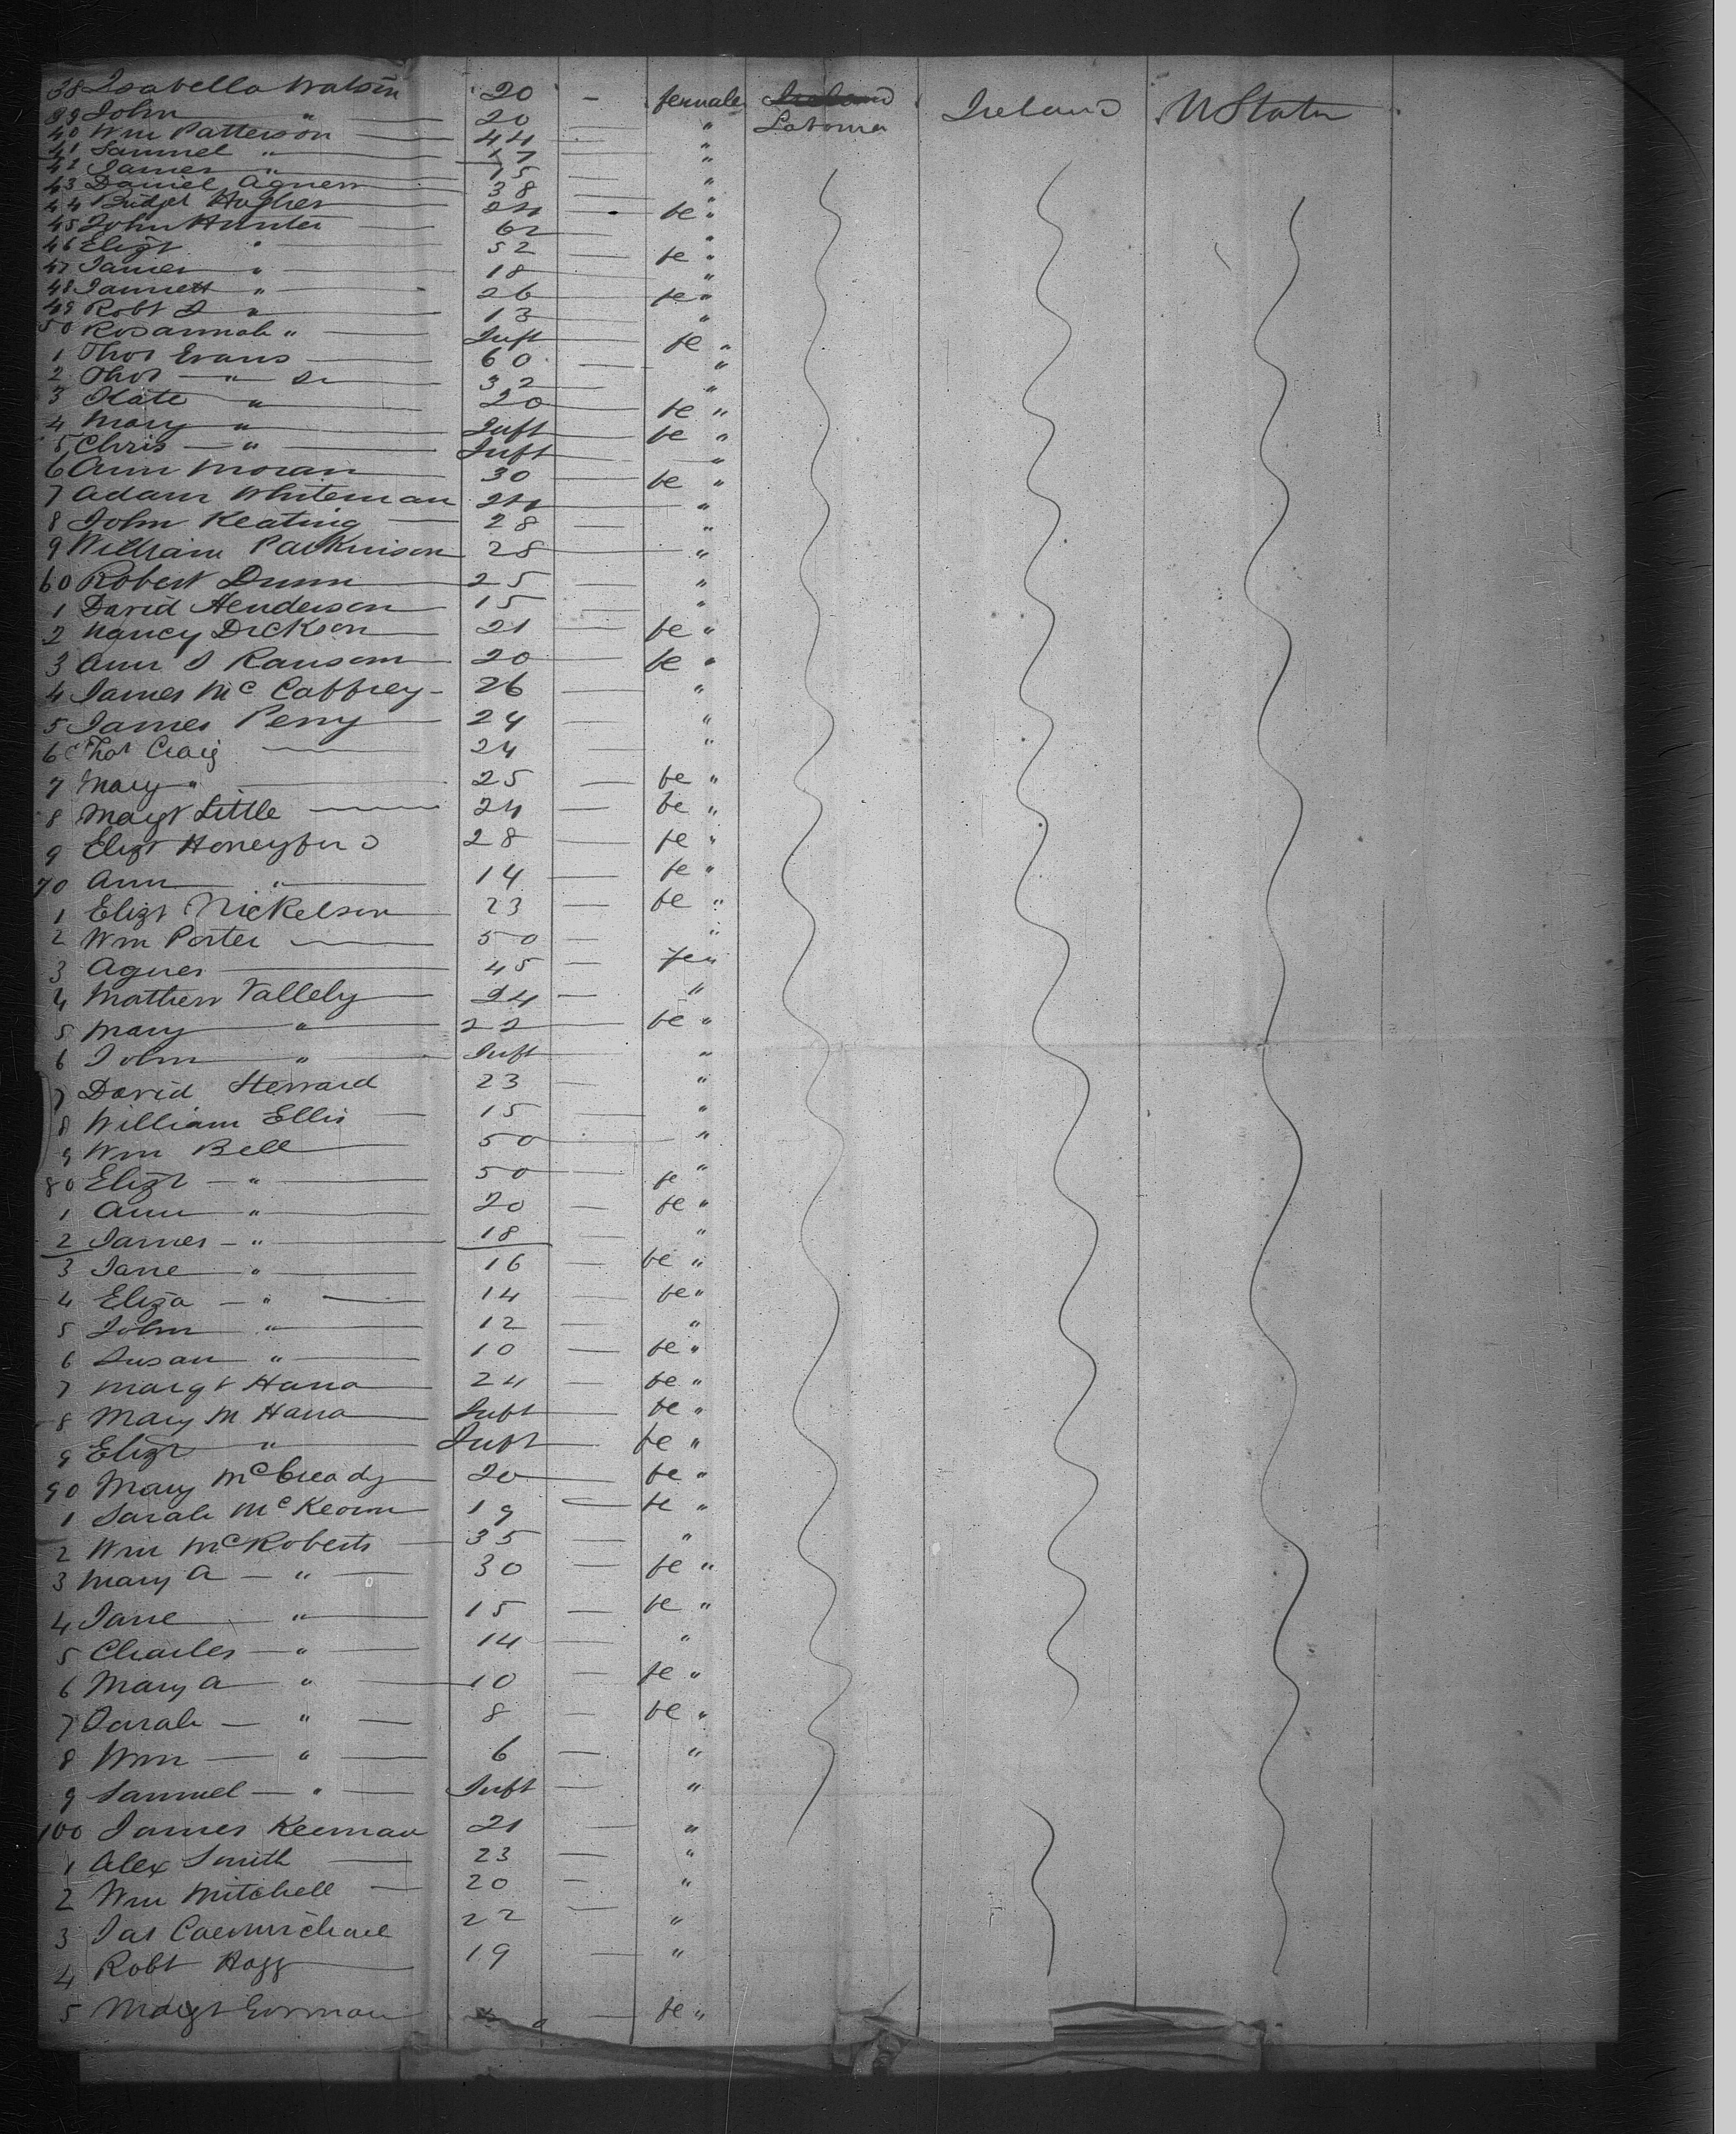 38 Isabella Watson 20 - female Ireland Ireland U States
39 John " 20 " Laborer
40 Wm Patterson 44 "
41 Samuel " 17 "
42 James " 15 "
43 Daniel Agnew 38 "
44 Bridget Hughes 24 fe "
45 John Hunter 62 "
46 Elizt " 52 fe "
47 James " 18 "
48 Jannett " 26 fe "
49 Robt J " 13 "
50 Rosannah " Inft fe "
1 Thos Evans 60 "
2 Thos " 32 "
3 Kate " 20 fe "
4 Mary " Inft fe "
5 Chris " Inft "
6 Ann Moran 30 fe "
7 Adam Whiteman 24 "
8 John Keating 28 "
9 William Parkinson 28 "
60 Robert Dunn 25 "
1 David Henderson 15 "
2 Nancy Dickson 21 fe "
3 Ann J Ransom 20 fe "
4 James McCaffrey 26 "
5 James Perry 24 "
6 Thos Craig 24 "
7 Mary " 25 fe "
8 Margt Little 24 fe "
9 Elizt Honeyford 28 fe "
70 Ann " 14 fe "
1 Elizt Nickelson 23 fe "
2 Wm Porter 50 "
3 Agnes 45 fe "
4 Mathew Vallely 24 "
5 Mary " 22 fe "
6 John " Inft "
7 David Steward 23 "
8 William Ellis 15 "
9 Wm Bell 50 "
80 Elizt " 50 fe "
1 Ann " 20 fe "
2 James " 18 "
3 Jane " 16 fe "
4 Eliza " 14 fe "
5 John " 12 "
6 Susan " 10 fe "
7 Margt Hana 24 fe "
8 Mary M Hana Inft fe "
9 Elizt " Inft fe "
90 Mary McCready 20 fe "
1 Sarah McKeown 19 fe "
2 Wm McRoberts 35 "
3 Mary A " 30 fe "
4 Jane " 15 fe "
5 Charles " 14 "
6 Mary A " 10 fe "
7 Sarah " 8 fe "
8 Wm " 6 "
9 Samuel " Inft "
100 James Keenan 21 "
1 Alex Smith 23 "
2 Wm Mitchell 20 "
3 Jas Carmichael 22 "
4 Robt Hogg 19 "
5 Margt Gorman fe "